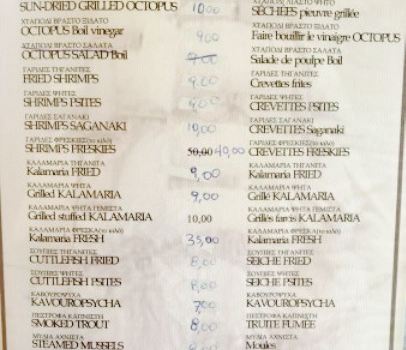 SUN-DRIED GRILLED OCTOPUS 10,00 SÉCHÉES pieuvre grillée
ΧΤΑΠΟΔΙ ΒΡΑΣΤΟ ΞΙΔΑΤΟ ΧΤΑΠΟΔΙ ΒΡΑΣΤΟ ΞΙΔΑΤΟ
OCTOPUS Boil vinegar 9,00 Faire bouillir le vinaigre OCTOPUS
ΧΤΑΠΟΔΙ ΒΡΑΣΤΟ ΣΑΛΑΤΑ ΧΤΑΠΟΔΙ ΒΡΑΣΤΟ ΣΑΛΑΤΑ
OCTOPUS SALAD Boil 9,00 Salade de poulpe Boil
ΓΑΡΙΔΕΣ ΤΗΓΑΝΙΤΕΣ ΓΑΡΙΔΕΣ ΤΗΓΑΝΙΤΕΣ
FRIED SHRIMPS 9,00 Crevettes frites
ΓΑΡΙΔΕΣ ΨΗΤΕΣ ΓΑΡΙΔΕΣ ΨΗΤΕΣ
SHRIMPS PSITES 9,00 CREVETTES PSITES
ΓΑΡΙΔΕΣ ΣΑΓΑΝΑΚΙ ΓΑΡΙΔΕΣ ΣΑΓΑΝΑΚΙ
SHRIMPS SAGANAKI 10,00 CREVETTES Saganaki
ΓΑΡΙΔΕΣ ΦΡΕΣΚΙΕΣ(το κιλο) ΓΑΡΙΔΕΣ ΦΡΕΣΚΙΕΣ(το κιλο)
SHRIMPS FRESKIES 50,00 40,00 CREVETTES FRESKIES
ΚΑΛΑΜΑΡΙΑ ΤΗΓΑΝΙΤΑ ΚΑΛΑΜΑΡΙΑ ΤΗΓΑΝΙΤΑ
Kalamaria FRIED 9,00 Kalamaria FRIED
ΚΑΛΑΜΑΡΙΑ ΨΗΤΑ ΚΑΛΑΜΑΡΙΑ ΨΗΤΑ
Grilled KALAMARIA 9,00 Grillé KALAMARIA
ΚΑΛΑΜΑΡΙΑ ΨΗΤΑ ΓΕΜΙΣΤΑ ΚΑΛΑΜΑΡΙΑ ΨΗΤΑ ΓΕΜΙΣΤΑ
Grilled stuffed KALAMARIA 10,00 Grillés farcis KALAMARIA
ΚΑΛΑΜΑΡΙΑ ΦΡΕΣΚΑ(το κιλο) ΚΑΛΑΜΑΡΙΑ ΦΡΕΣΚΑ(το κιλο)
Kalamaria FRESH 35,00 Kalamaria FRESH
ΣΟΥΠΙΕΣ ΤΗΓΑΝΙΤΕΣ ΣΟΥΠΙΕΣ ΤΗΓΑΝΙΤΕΣ
CUTTLEFISH FRIED 8,00 SEICHE FRIED
ΣΟΥΠΙΕΣ ΨΗΤΕΣ ΣΟΥΠΙΕΣ ΨΗΤΕΣ
CUTTLEFISH PSITES 8,00 SEICHE PSITES
ΚΑΒΟΥΡΟΨΥΧΑ ΚΑΒΟΥΡΟΨΥΧΑ
KAVOUROPSYCHA 7,00 KAVOUROPSYCHA
ΠΕΣΤΡΟΦΑ ΚΑΠΝΙΣΤΗ ΠΕΣΤΡΟΦΑ ΚΑΠΝΙΣΤΗ
SMOKED TROUT 8,00 TRUITE FUMÉE
ΜΥΔΙΑ ΑΧΝΙΣΤΑ ΜΥΔΙΑ ΑΧΝΙΣΤΑ
STEAMED MUSSELS 8,00 Moules